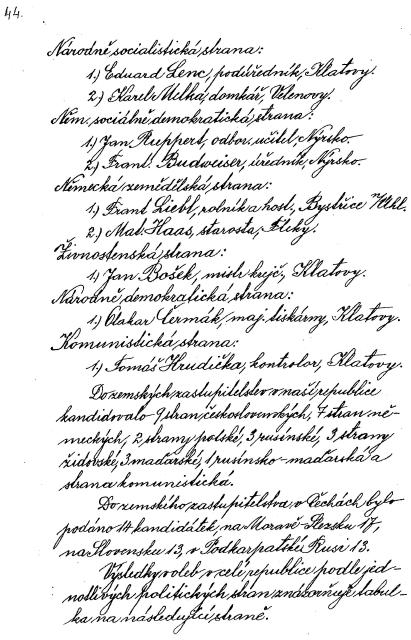 44.
Národně socialistická strana:
1.) Eduard Lenc, podúředník, Klatovy.
2.) Karel Milka, domkář, Velenovy.
Něm. sociálně demokratická strana:
1.) Jan Ruppert, odbor. učitel, Nýrsko.
2.) Frant. Budweiser, úředník, Nýrsko.
Německá zemědělská strana:
1.) Frant Liebl, rolník a host., Bystřice
2.) Mat. Haas, starosta, Flčky.
Živnostenská strana:
1.) Jan Bošek, mistr krejč., Klatovy.
Národně demokratická strana:
1.) Otakar Čermák, maj. tiskárny, Klatovy.
Komunistická strana:
1.) Tomáš Hrudička, kontrolor, Klatovy.
Do zemských zastupitelstev v naší republice
kandidovalo 9 stran československých, 7 stran ně-
meckých, 2 strany polské, 3 rusínské, 3 strany
židovské, 3 maďarské, 1 rusínsko-maďarská a
strana komunistická.
Do zemského zastupitelstva v Čechách bylo
podáno 14 kandidátek, na Moravě-Slezsku 17,
na Slovensku 13, v Podkarpatské Rusi 13.
Výsledky voleb v celé republice podle jed-
notlivých politických stran znázorňuje tabul-
ka na následující straně.